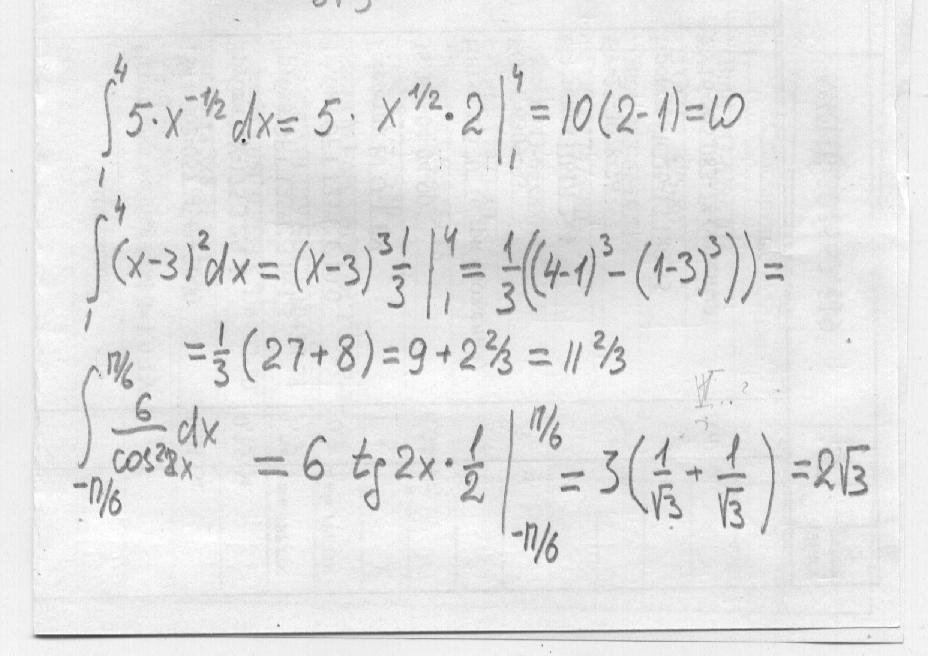 ∫₁⁴ 5·x^(-1/2) dx = 5· x^(1/2)·2 |₁⁴ = 10(2-1)=10
∫₁⁴ (x-3)² dx = (x-3)³ 1/3 |₁⁴ = 1/3((4-1)³-(1-3)³)) =
= 1/3 (27+8) = 9 + 2 2/3 = 11 2/3
∫_(-π/6)^(π/6) 6/cos²2x dx = 6 tg 2x · 1/2 |_(-π/6)^(π/6) = 3(1/√3 + 1/√3) = 2√3